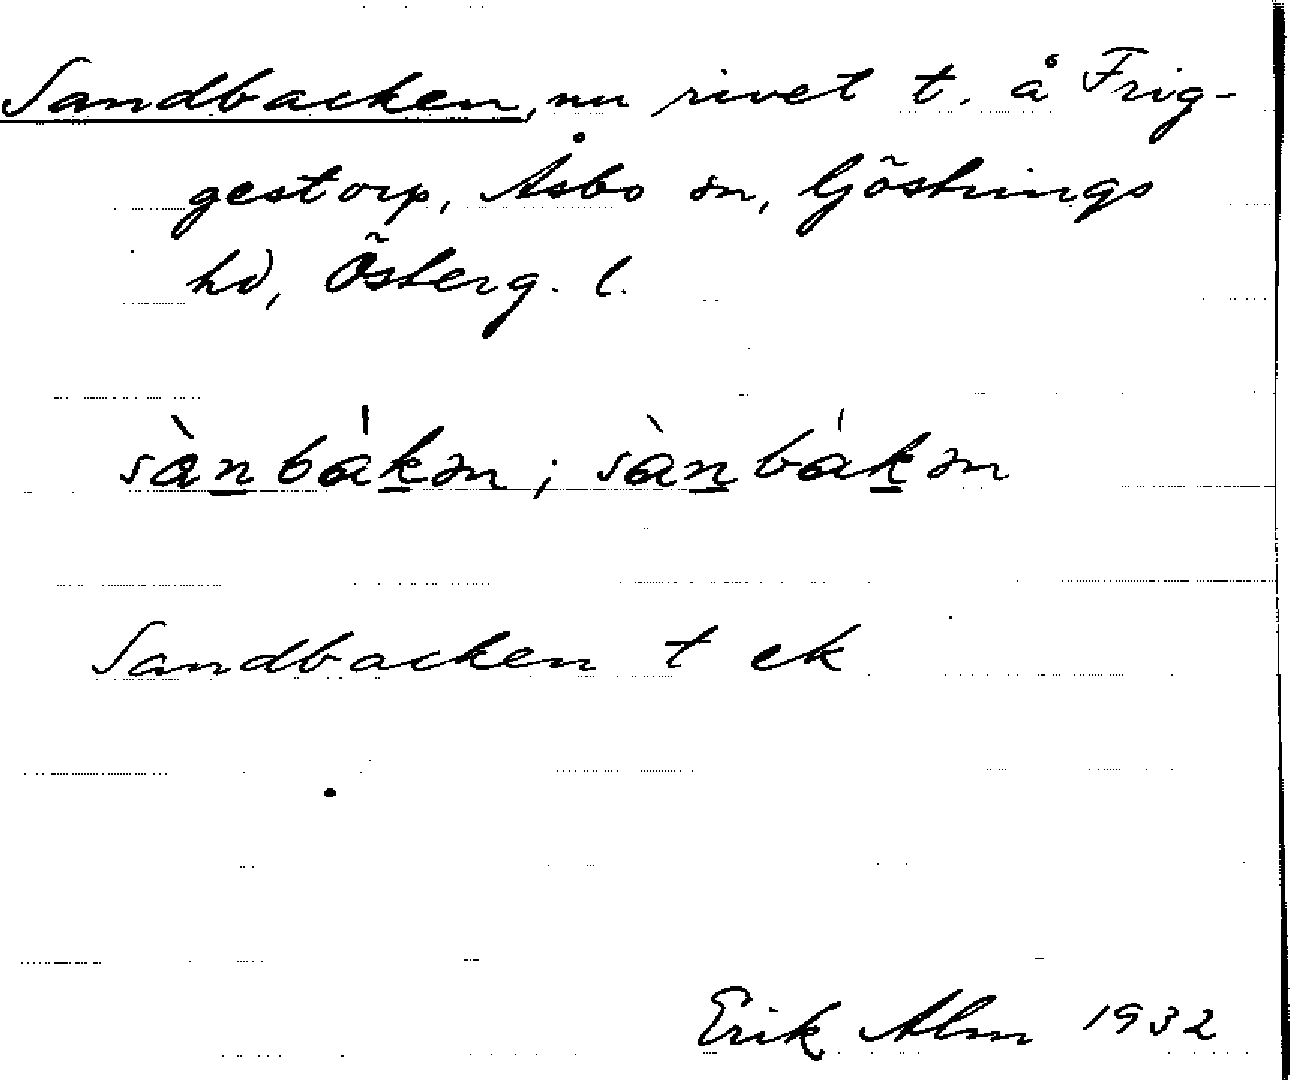 Sandbacken, nu rivet t. å Frig-
gestorp, Åsbo sn, Göstrings
hd, Österg. l.
sànbákən; sànbákən
Sandbacken t ek
Erik Alm 1932